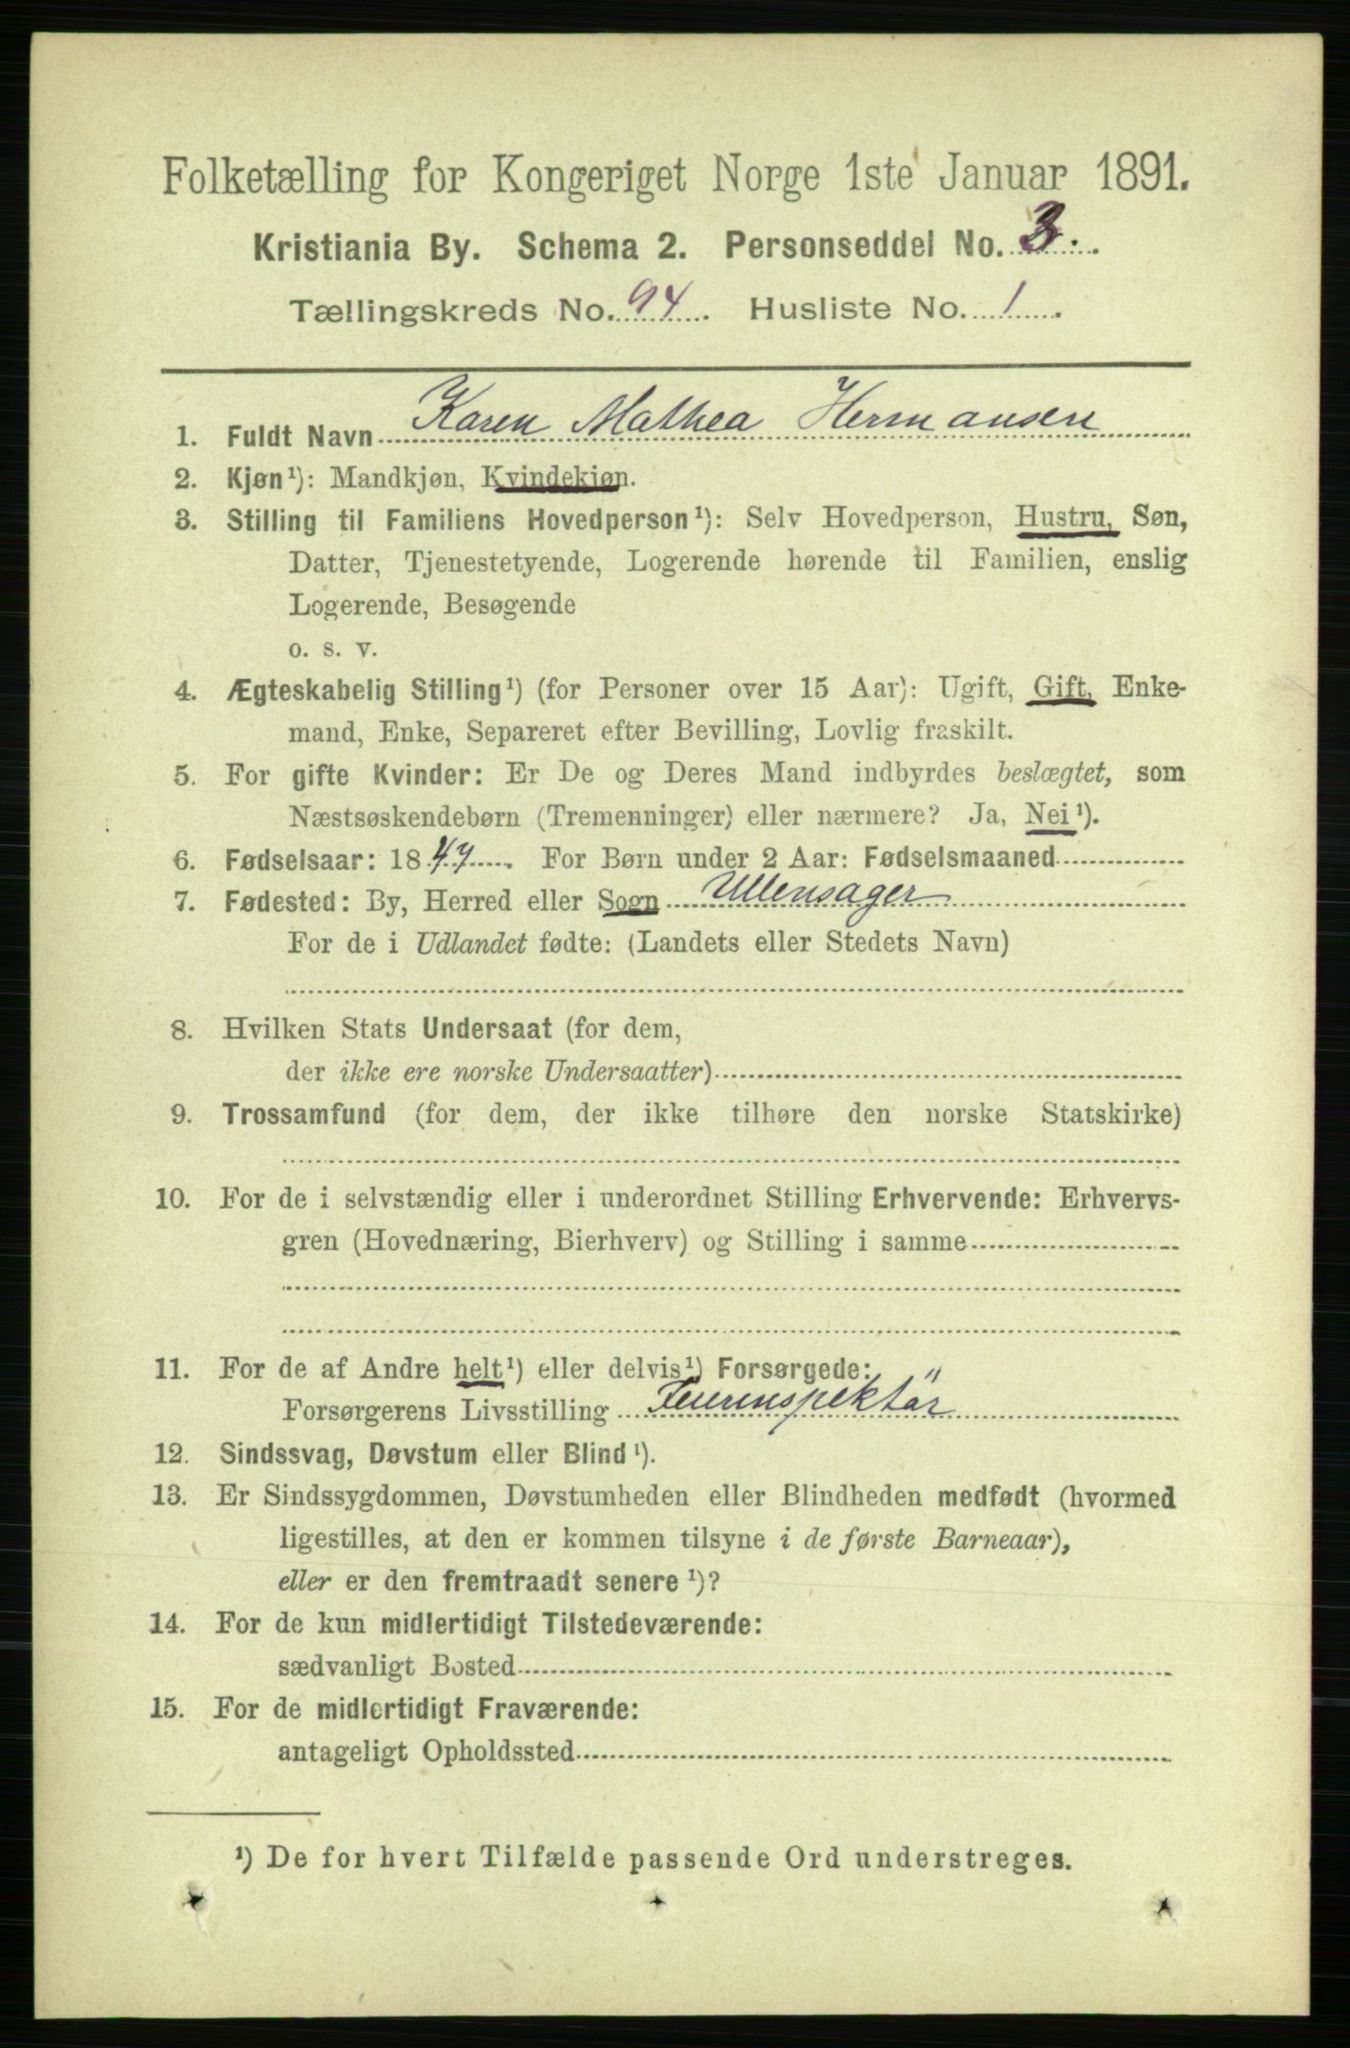 Folketælling for Kongeriget Norge 1ste Januar 1891.
Kristiania By. Schema 2. Personseddel No. 3.
Tællingskreds No. 94. Husliste No. 1.
1. Fuldt Navn Karen Mathea Hermansen
2. Kjøn¹): Mandkjøn, Kvindekjøn.
3. Stilling til Familiens Hovedperson¹): Selv Hovedperson, Hustru, Søn,
Datter, Tjenestetyende, Logerende hørende til Familien, enslig
Logerende, Besøgende
o. s. v.
4. Ægteskabelig Stilling¹) (for Personer over 15 Aar): Ugift, Gift, Enke-
mand, Enke, Separeret efter Bevilling, Lovlig fraskilt.
5. For gifte Kvinder: Er De og Deres Mand indbyrdes beslægtet, som
Næstsøskendebørn (Tremenninger) eller nærmere? Ja, Nei¹).
6. Fødselsaar: 1847. For Børn under 2 Aar: Fødselsmaaned
7. Fødested: By, Herred eller Sogn Ullensager
For de i Udlandet fødte: (Landets eller Stedets Navn)
8. Hvilken Stats Undersaat (for dem,
der ikke ere norske Undersaatter)
9. Trossamfund (for dem, der ikke tilhøre den norske Statskirke)
10. For de i selvstændig eller i underordnet Stilling Erhvervende: Erhvervs-
gren (Hovednæring, Bierhverv) og Stilling i samme
11. For de af Andre helt¹) eller delvis¹) Forsørgede:
Forsørgerens Livsstilling Feierinspektör
12. Sindssvag, Døvstum eller Blind¹).
13. Er Sindssygdommen, Døvstumheden eller Blindheden medfødt (hvormed
ligestilles, at den er kommen tilsyne i de første Barneaar),
eller er den fremtraadt senere¹)?
14. For de kun midlertidigt Tilstedeværende:
sædvanligt Bosted
15. For de midlertidigt Fraværende:
antageligt Opholdssted
¹) De for hvert Tilfælde passende Ord understreges.